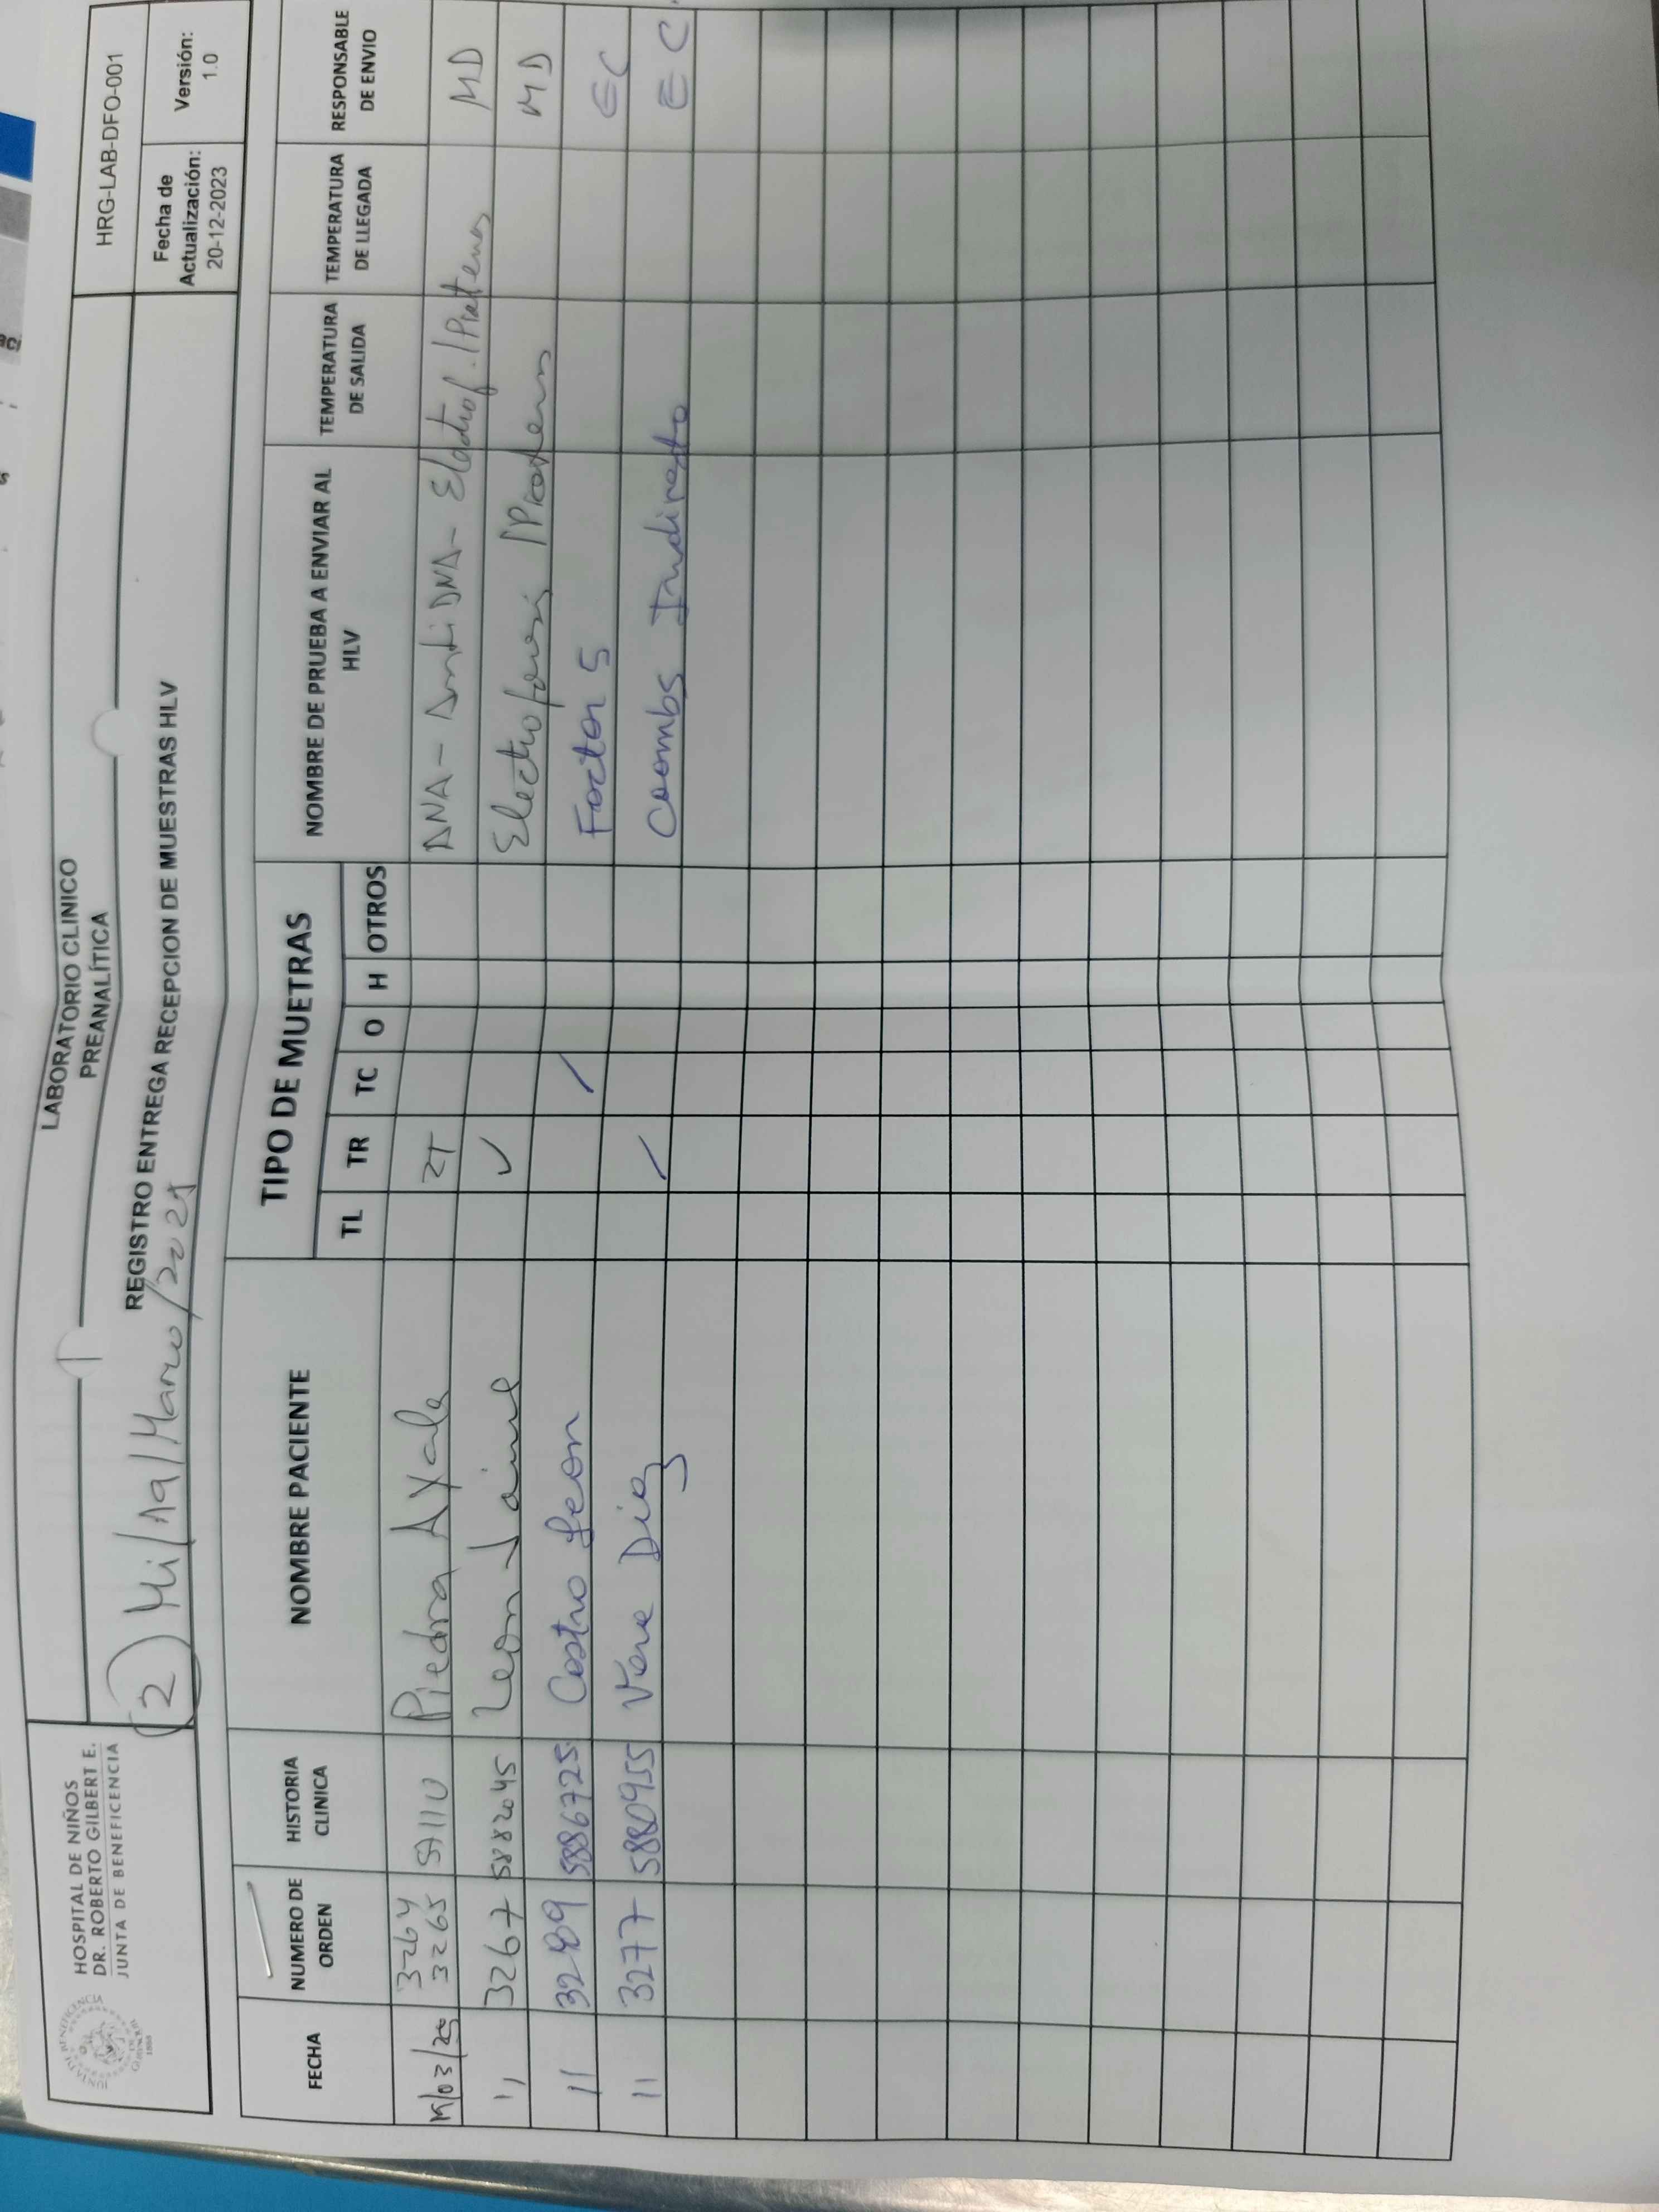 HOSPITAL DE NIÑOS
DR. ROBERTO GILBERT E.
JUNTA DE BENEFICENCIA
LABORATORIO CLINICO
PREANALÍTICA
HRG-LAB-DFO-001
REGISTRO ENTREGA RECEPCION DE MUESTRAS HLV
Fecha de Actualización: 20-12-2023
Versión: 1.0
2 Mi/19/Marzo/2025
FECHA NUMERO DE ORDEN HISTORIA CLINICA NOMBRE PACIENTE TIPO DE MUETRAS NOMBRE DE PRUEBA A ENVIAR AL HLV TEMPERATURA DE SALIDA TEMPERATURA DE LLEGADA RESPONSABLE DE ENVIO
TL TR TC O H OTROS
19/03/25 3264 3265 Piedra Ayala 2T ANA - Anti DNA - Electrof. Proteinas MD
" 3267 5882045 Leon Jaime ✓ Electroforesis Proteinas MD
" 5886725 Castro Leon / Factor 5 EC
" 3277 5880955 Vera Diaz / Coombs Indirecto EC